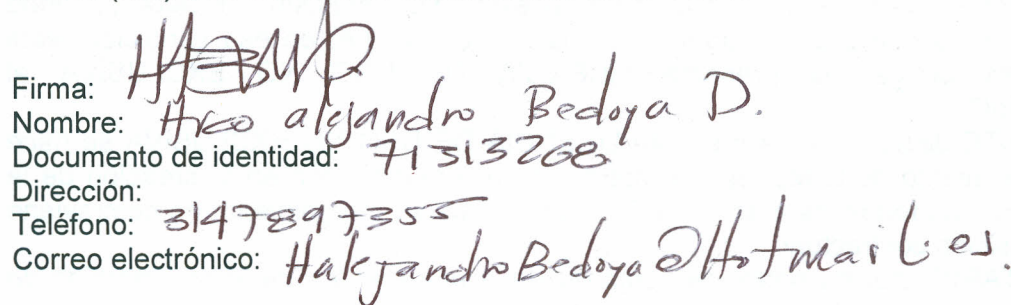 Firma:
Nombre: alejandro Bedoya D.
Documento de identidad: 71313268
Dirección:
Teléfono: 3147897355
Correo electrónico: HalejandroBedoya@Hotmail.es.